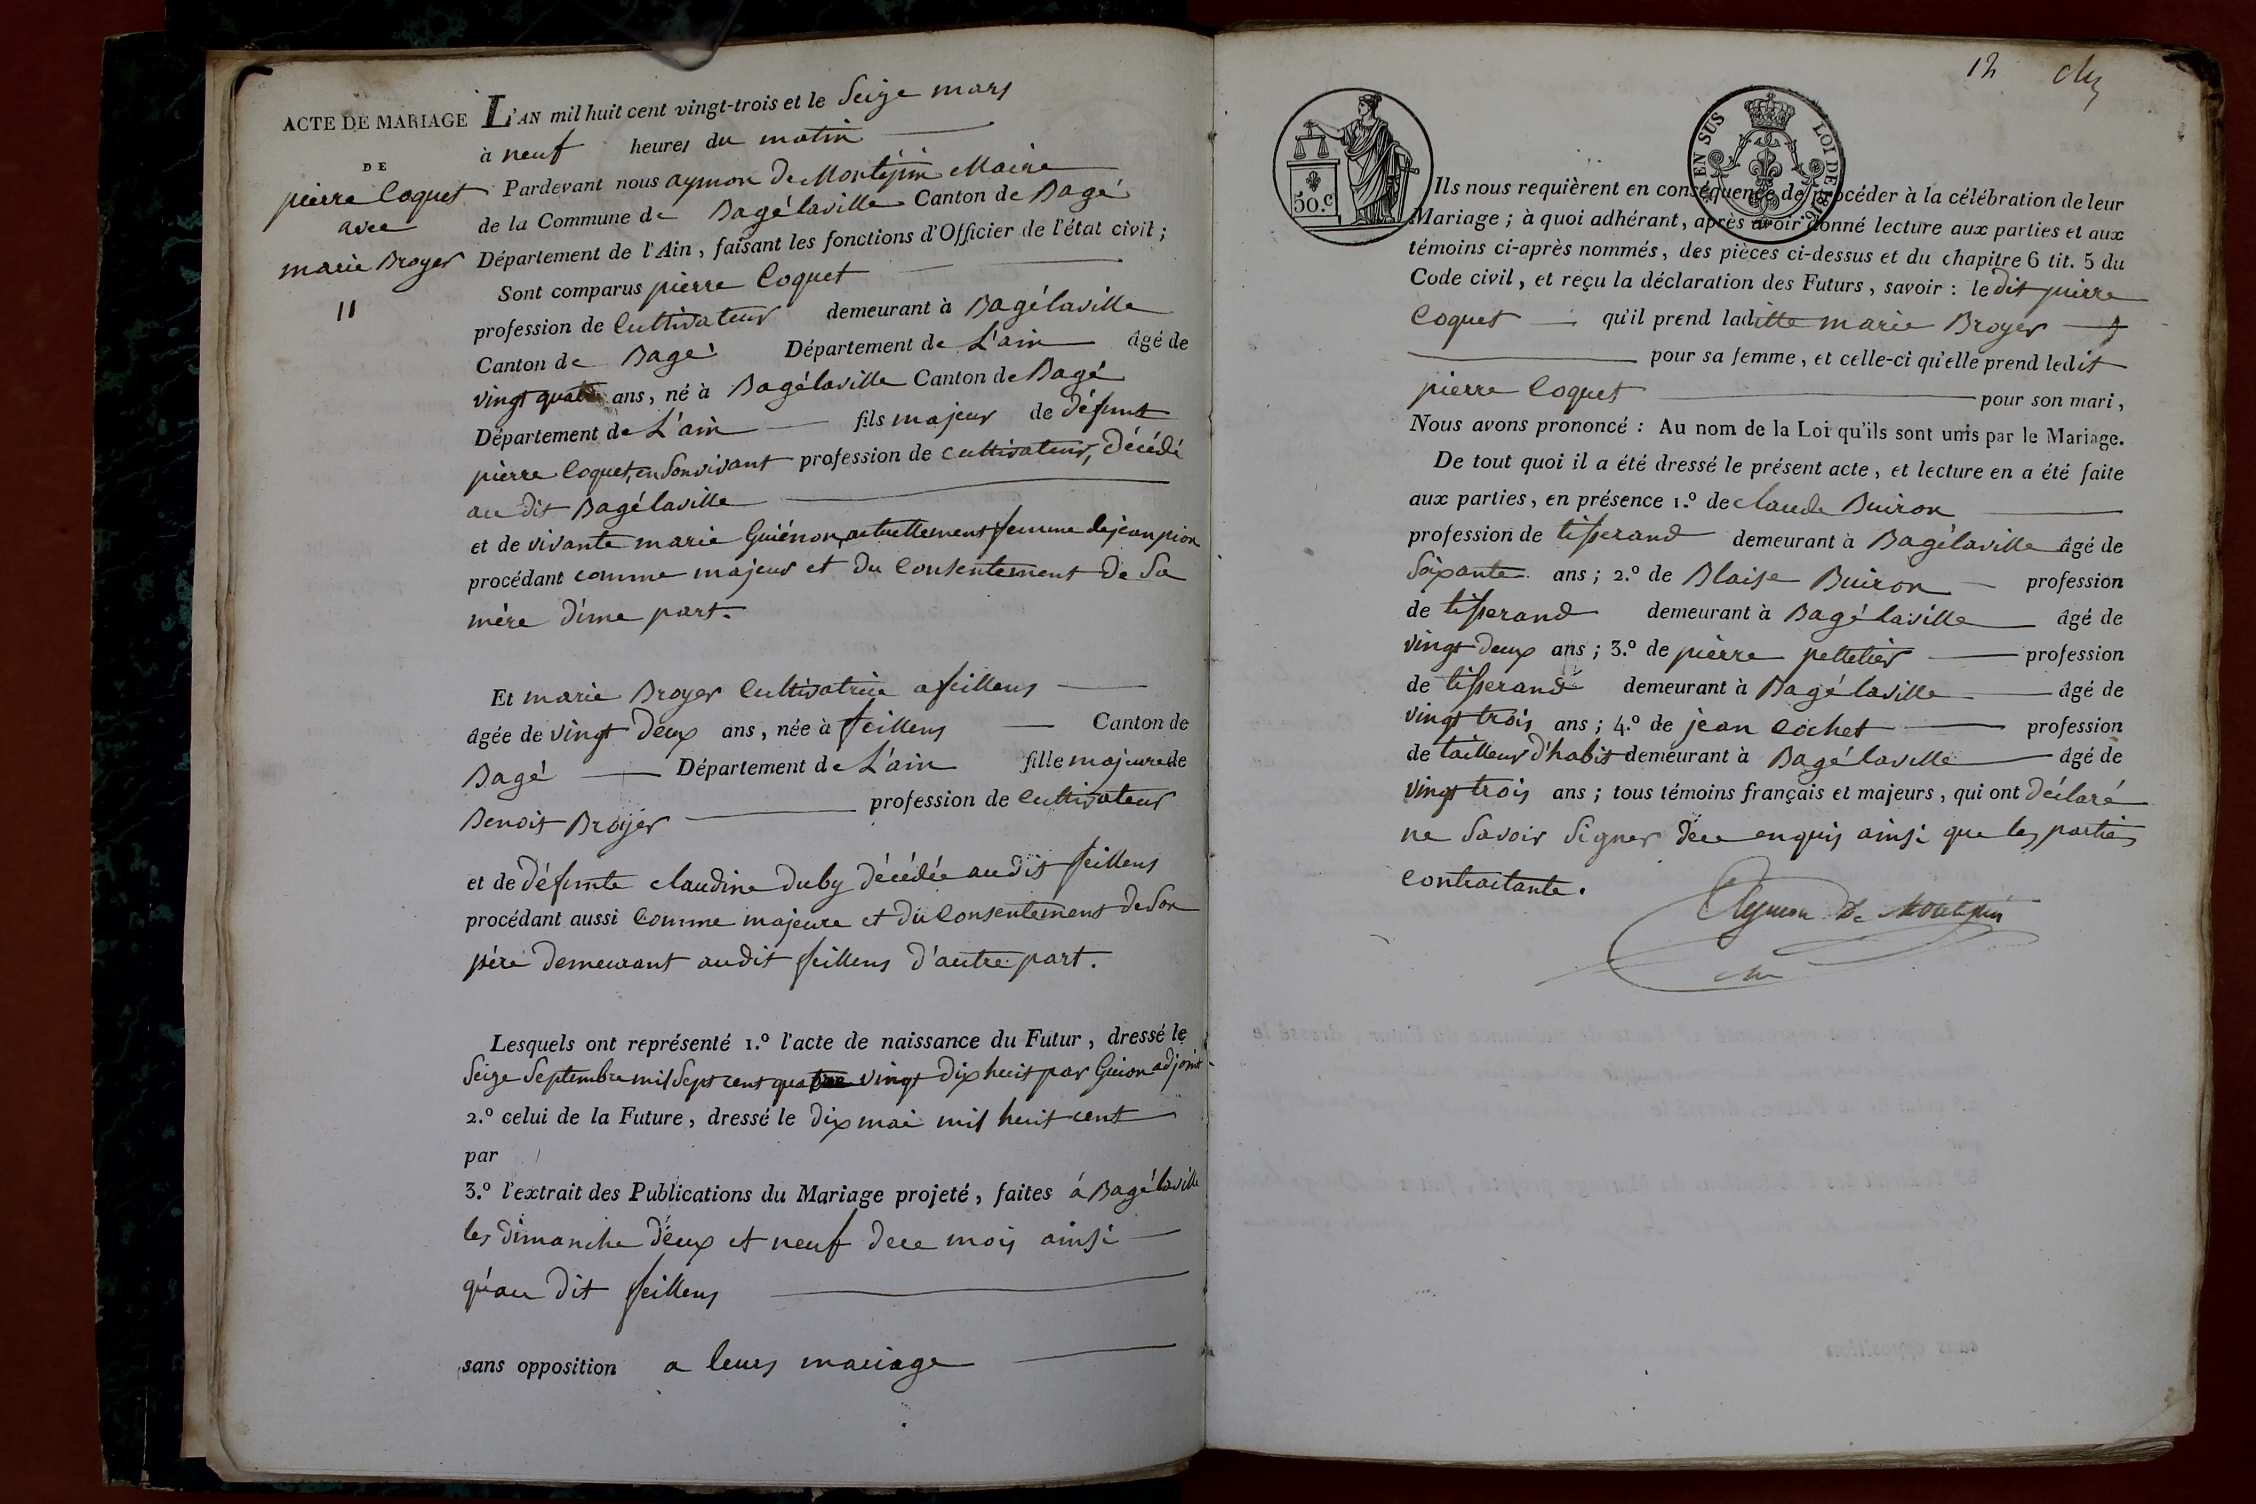 ACTE DE MARIAGE
DE
pierre Coquet
avec
marie Broyer
11
L'AN mil huit cent vingt-trois et le Seize mars
à neuf heures du matin
Pardevant nous aymon De Montépin Maire
de la Commune de Bagé laville Canton de Bagé
Département de l'Ain, faisant les fonctions d'Officier de l'état civil ;
Sont comparus pierre Coquet
profession de Cultivateur demeurant à Bagé laville
Canton de Bagé Département de L'ain âgé de
vingt quatre ans, né à Bagé laville Canton de Bagé
Département de L'ain fils majeur de défunt
pierre Coquet, en Son vivant profession de cultivateur, Décédé
au dit Bagé laville
et de vivante marie Guiénon, actuellement femme de jean pion
procédant comme majeur et du Consentement de Sa
mère d'une part.
Et marie Broyer Cultivatrice a feillens
âgée de vingt deux ans, née à feillens Canton de
Bagé Département de L'ain fille majeure de
Benoit Broyer profession de Cultivateur
et de défunte claudine Duby décédée au dit feillens
procédant aussi Comme majeure et du Consentement de Son
père demeurant au dit feillens d'autre part.
Lesquels ont représenté 1.º l'acte de naissance du Futur, dressé le
Seize Septembre mil Sept cent quatre vingt Dix huit par Guion adjoint
2.º celui de la Future, dressé le Dix mai mil huit cent
par
3.º l'extrait des Publications du Mariage projeté, faites à Bagé laville
les Dimanche Deux et neuf de ce mois ainsi
qu'au dit feillens
sans opposition a leur mariage
12
50.c
EN SUS
LOI DE 1816.
Ils nous requièrent en conséquence de procéder à la célébration de leur
Mariage ; à quoi adhérant, après avoir donné lecture aux parties et aux
témoins ci-après nommés, des pièces ci-dessus et du chapitre 6 tit. 5 du
Code civil, et reçu la déclaration des Futurs, savoir : le dit pierre
Coquet qu'il prend laditte marie Broyer
pour sa femme, et celle-ci qu'elle prend ledit
pierre Coquet pour son mari,
Nous avons prononcé : Au nom de la Loi qu'ils sont unis par le Mariage.
De tout quoi il a été dressé le présent acte, et lecture en a été faite
aux parties, en présence 1.º de claude Buiron
profession de tisserand demeurant à Bagé laville âgé de
Soixante ans ; 2.º de Blaise Buiron profession
de tisserand demeurant à Bagé laville âgé de
vingt deux ans ; 3.º de pierre pelletier profession
de tisserand demeurant à Bagé laville âgé de
vingt trois ans ; 4.º de jean Cochet profession
de tailleur d'habit demeurant à Bagé laville âgé de
vingt trois ans ; tous témoins français et majeurs, qui ont Déclaré
ne Savoir Signer de ce enquis ainsi que les parties
Contractante.
Aymon De Montépin